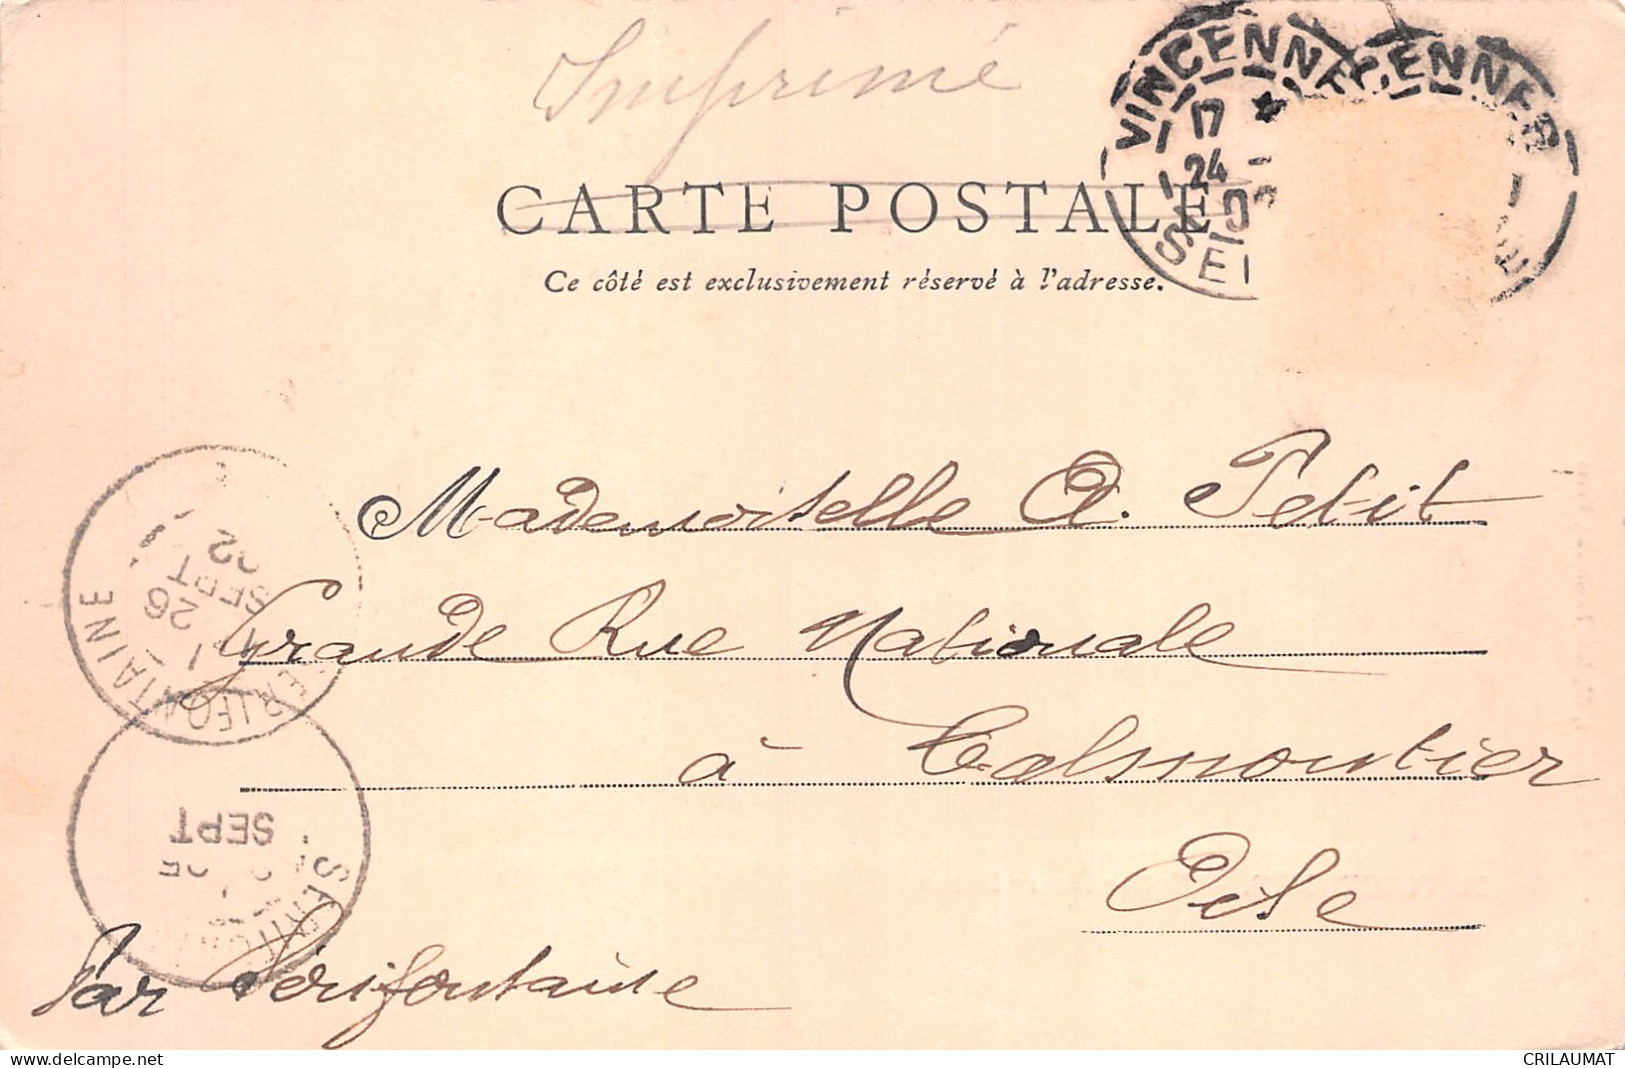 Imprimé
VINCENNES
17
24
SEI
ENNES
CARTE POSTALE
Ce côté est exclusivement réservé à l'adresse.
Mademoiselle A. Petit
Grande Rue Nationale
à Talmoutier
Oise
Par Sérifontaine
SERIFONTAINE
26
SEPT
02
SEPT
25
www.delcampe.net
CRILAUMAT